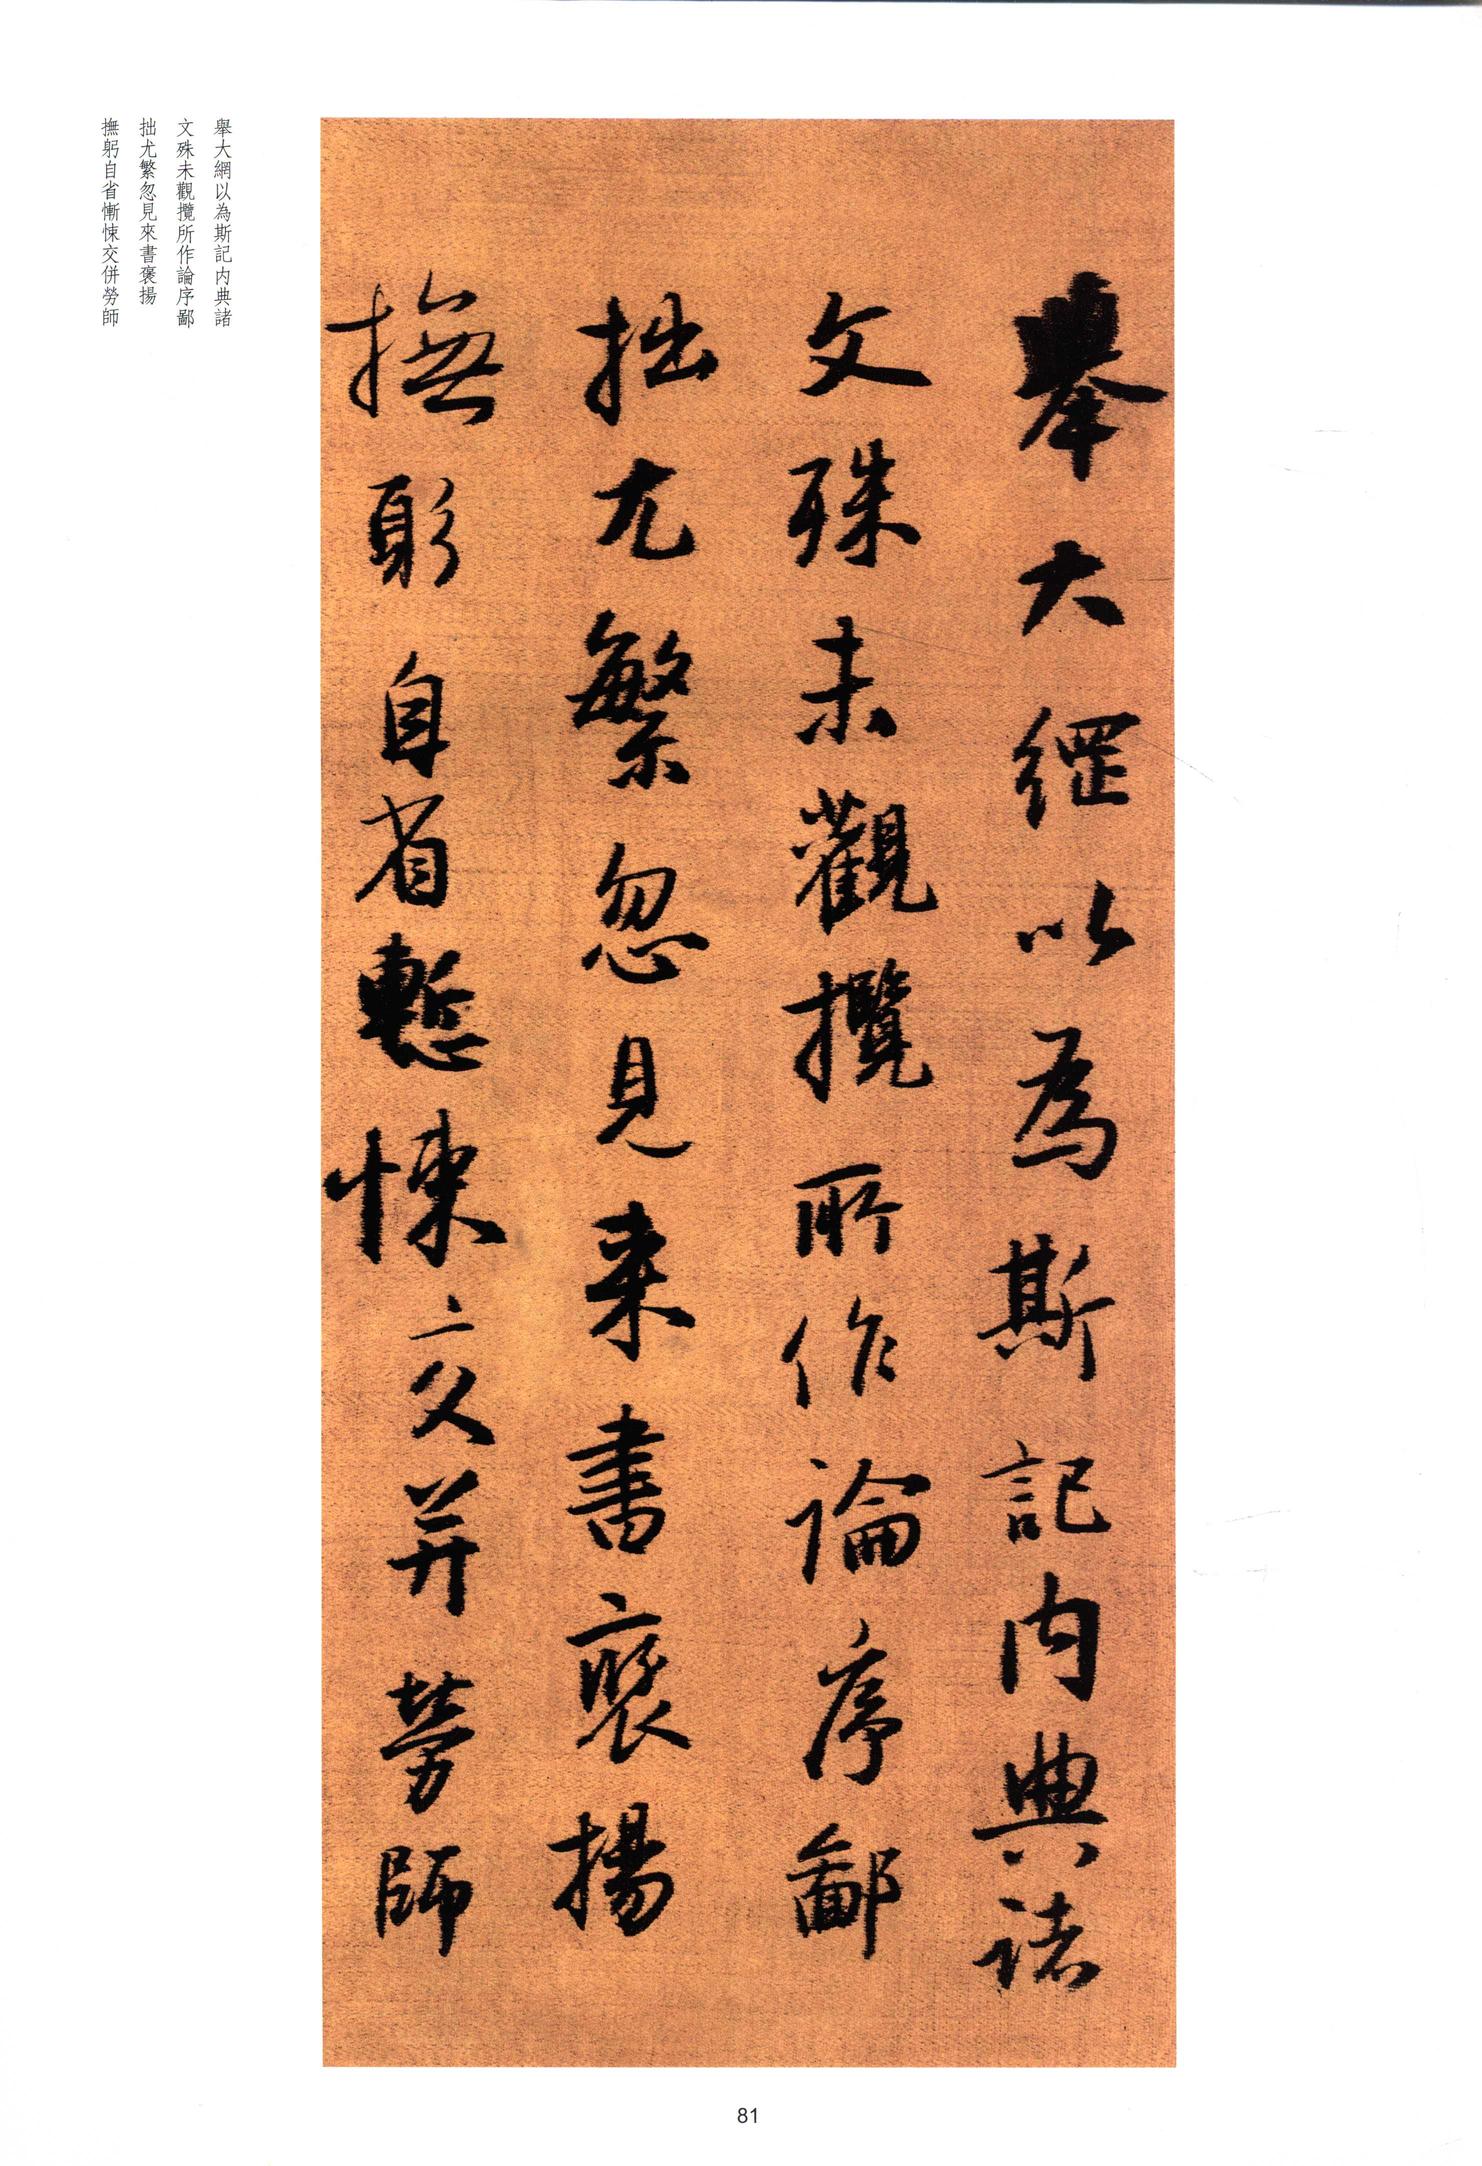 舉大網以為斯記内典諸
文殊未觀攬所作論序鄙
拙尤繁忽見來書褒揚
撫躬自省慚悚交併勞師
舉大綱以為斯記内典諸
文殊未觀攬所作論序鄙
拙尤繁忽見来書褒揚
撫躬自省慙悚交并勞師
81